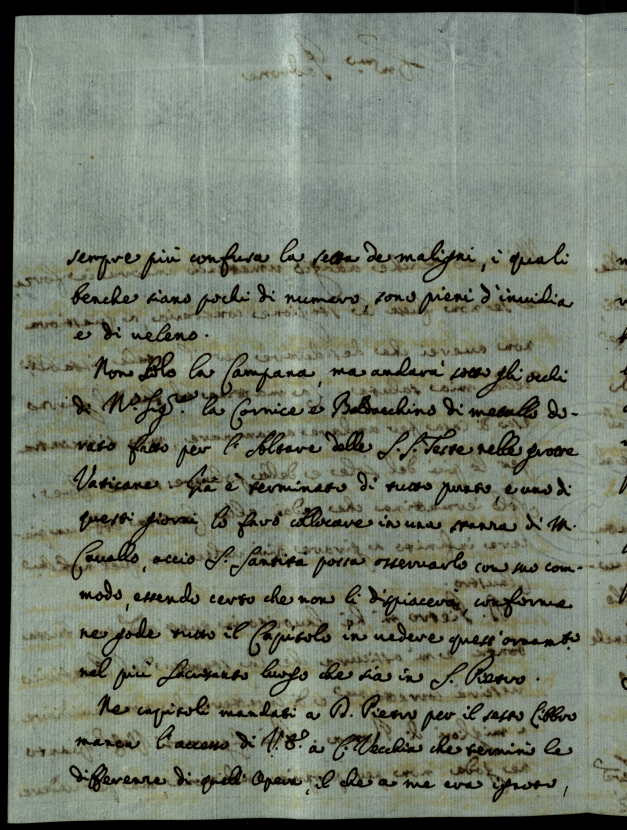 sempre più confusa la setta de maligni, i quali
benche siano pochi di numero, sono pieni d'invidia
e di veleno.
Non solo la Campana, ma andarà sotto gli occhi
di N.ro Sig.re la Cornice e Baldacchino di metallo do-
rato fatto per l'Altare delle S.S. Teste nelle grotte
Vaticane. Già è terminato di tutto punto, e uno di
questi giorni lo farò collocare in una stanza di M.
Cavallo, acciò S. Santità possa osservarlo con suo com-
modo, essendo certo che non li dispiacerà, conforme
ne gode tutto il Capitolo in vedere quest'ornam.to
nel più sacrosanto luogo che sia in S. Pietro.
Ne capitoli mandati a D. Pietro per il sesto Libbro
manca l'accesso di à C. Vecchia che termini le
differenze di quelli Operai, il che a me era ignoto,